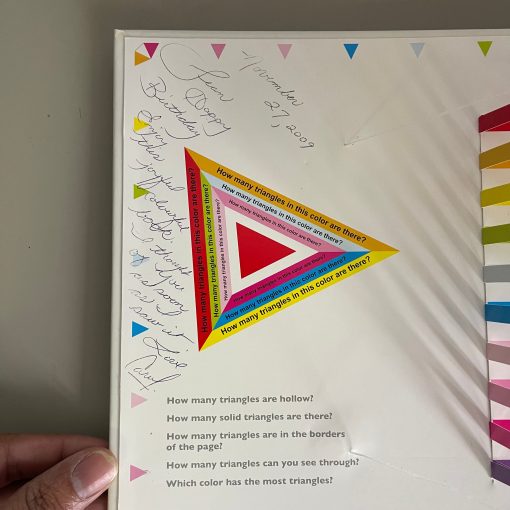 November
27, 2009
Jean
Happy
Birthday
Enjoy
this joyful
colourful
book. I thought
of you as
as soon as I
saw it.
Love
Carol
How many triangles in this color are there?
How many triangles in this color are there?
How many triangles in this color are there?
How many triangles in this color are there?
How many triangles in this color are there?
How many triangles in this color are there?
How many triangles in this color are there?
How many triangles in this color are there?
How many triangles in this color are there?
How many triangles are hollow?
How many solid triangles are there?
How many triangles are in the borders
of the page?
How many triangles can you see through?
Which color has the most triangles?